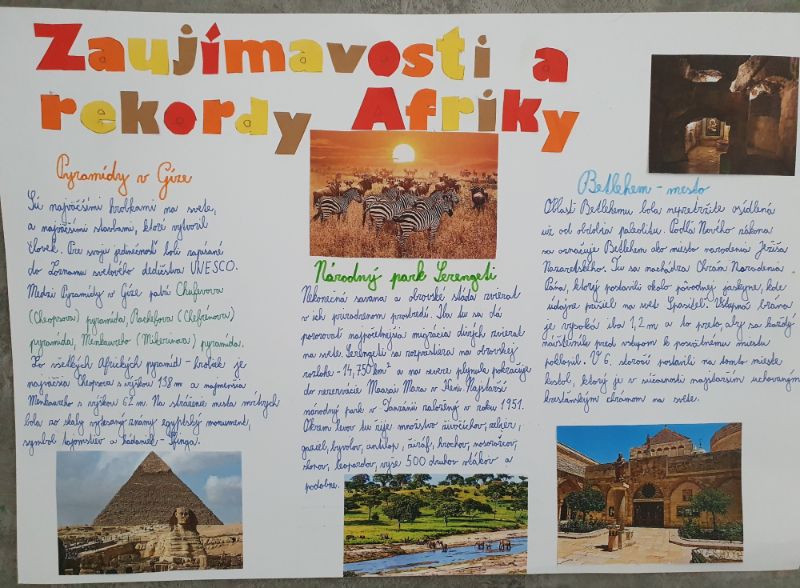 Zaujímavosti a
rekordy Afriky
Pyramídy v Gíze
Sú najväčšími hrobkami na svete,
a najväčšími stavbami, ktoré vytvoril
človek. Pre svoju jedinečnosť boli zapísané
do Zoznamu svetového dedičstva UNESCO.
Medzi Pyramídy v Gíze patrí Chufuovova
(Cheopsova) pyramída, Rachefova (Chefrénova)
pyramída, Menkaureho (Mikerinova) pyramída.
Zo všetkých Afrických pyramíd - hrobiek je
najväčšia Cheopsova s výškou 138 m a najmenšia
Menkaureho s výškou 62 m. Na stráženie mesta mŕtvych
bola zo skaly vytesaný známy egyptský monument,
symbol tajomstiev a hádaniek - Sfinga.
Národný park Serengeti
Nekonečná savana a obrovské stáda zvierat
v ich prirodzenom prostredí. Iba tu sa dá
pozorovať najpočetnejšia migrácia divých zvierat
na svete. Serengeti sa rozprestiera na obrovskej
rozlohe - 14,750 km² a na severe plynule pokračuje
do rezervácie Maasai Mara v Keni. Najstarší
národný park v Tanzánii založený v roku 1951.
Okrem levov tu žije množstvo živočíchov, zebier,
gaziel, byvolov, antilop, žiráf, hrochov, nosorožcov,
slonov, leopardov, vyše 500 druhov vtákov a
podobne.
Betlehem - mesto
Oblasť Betlehemu bola nepretržite osídlená
už od obdobia paleolitu. Podľa Nového zákona
sa označuje Betlehem ako miesto narodenia Ježiša
Nazaretského. Tu sa nachádza Chrám Narodenia
Pána, ktorý postavili okolo pôvodnej jaskyne, kde
údajne prišiel na svet Spasiteľ. Vstupná brána
je vysoká iba 1,2 m a to preto, aby sa každý
návštevník pred vstupom k posvätnému miestu
poklonil. V 6. storočí postavili na tomto mieste
kostol, ktorý je v súčasnosti najstarším uchovaným
kresťanským chrámom na svete.